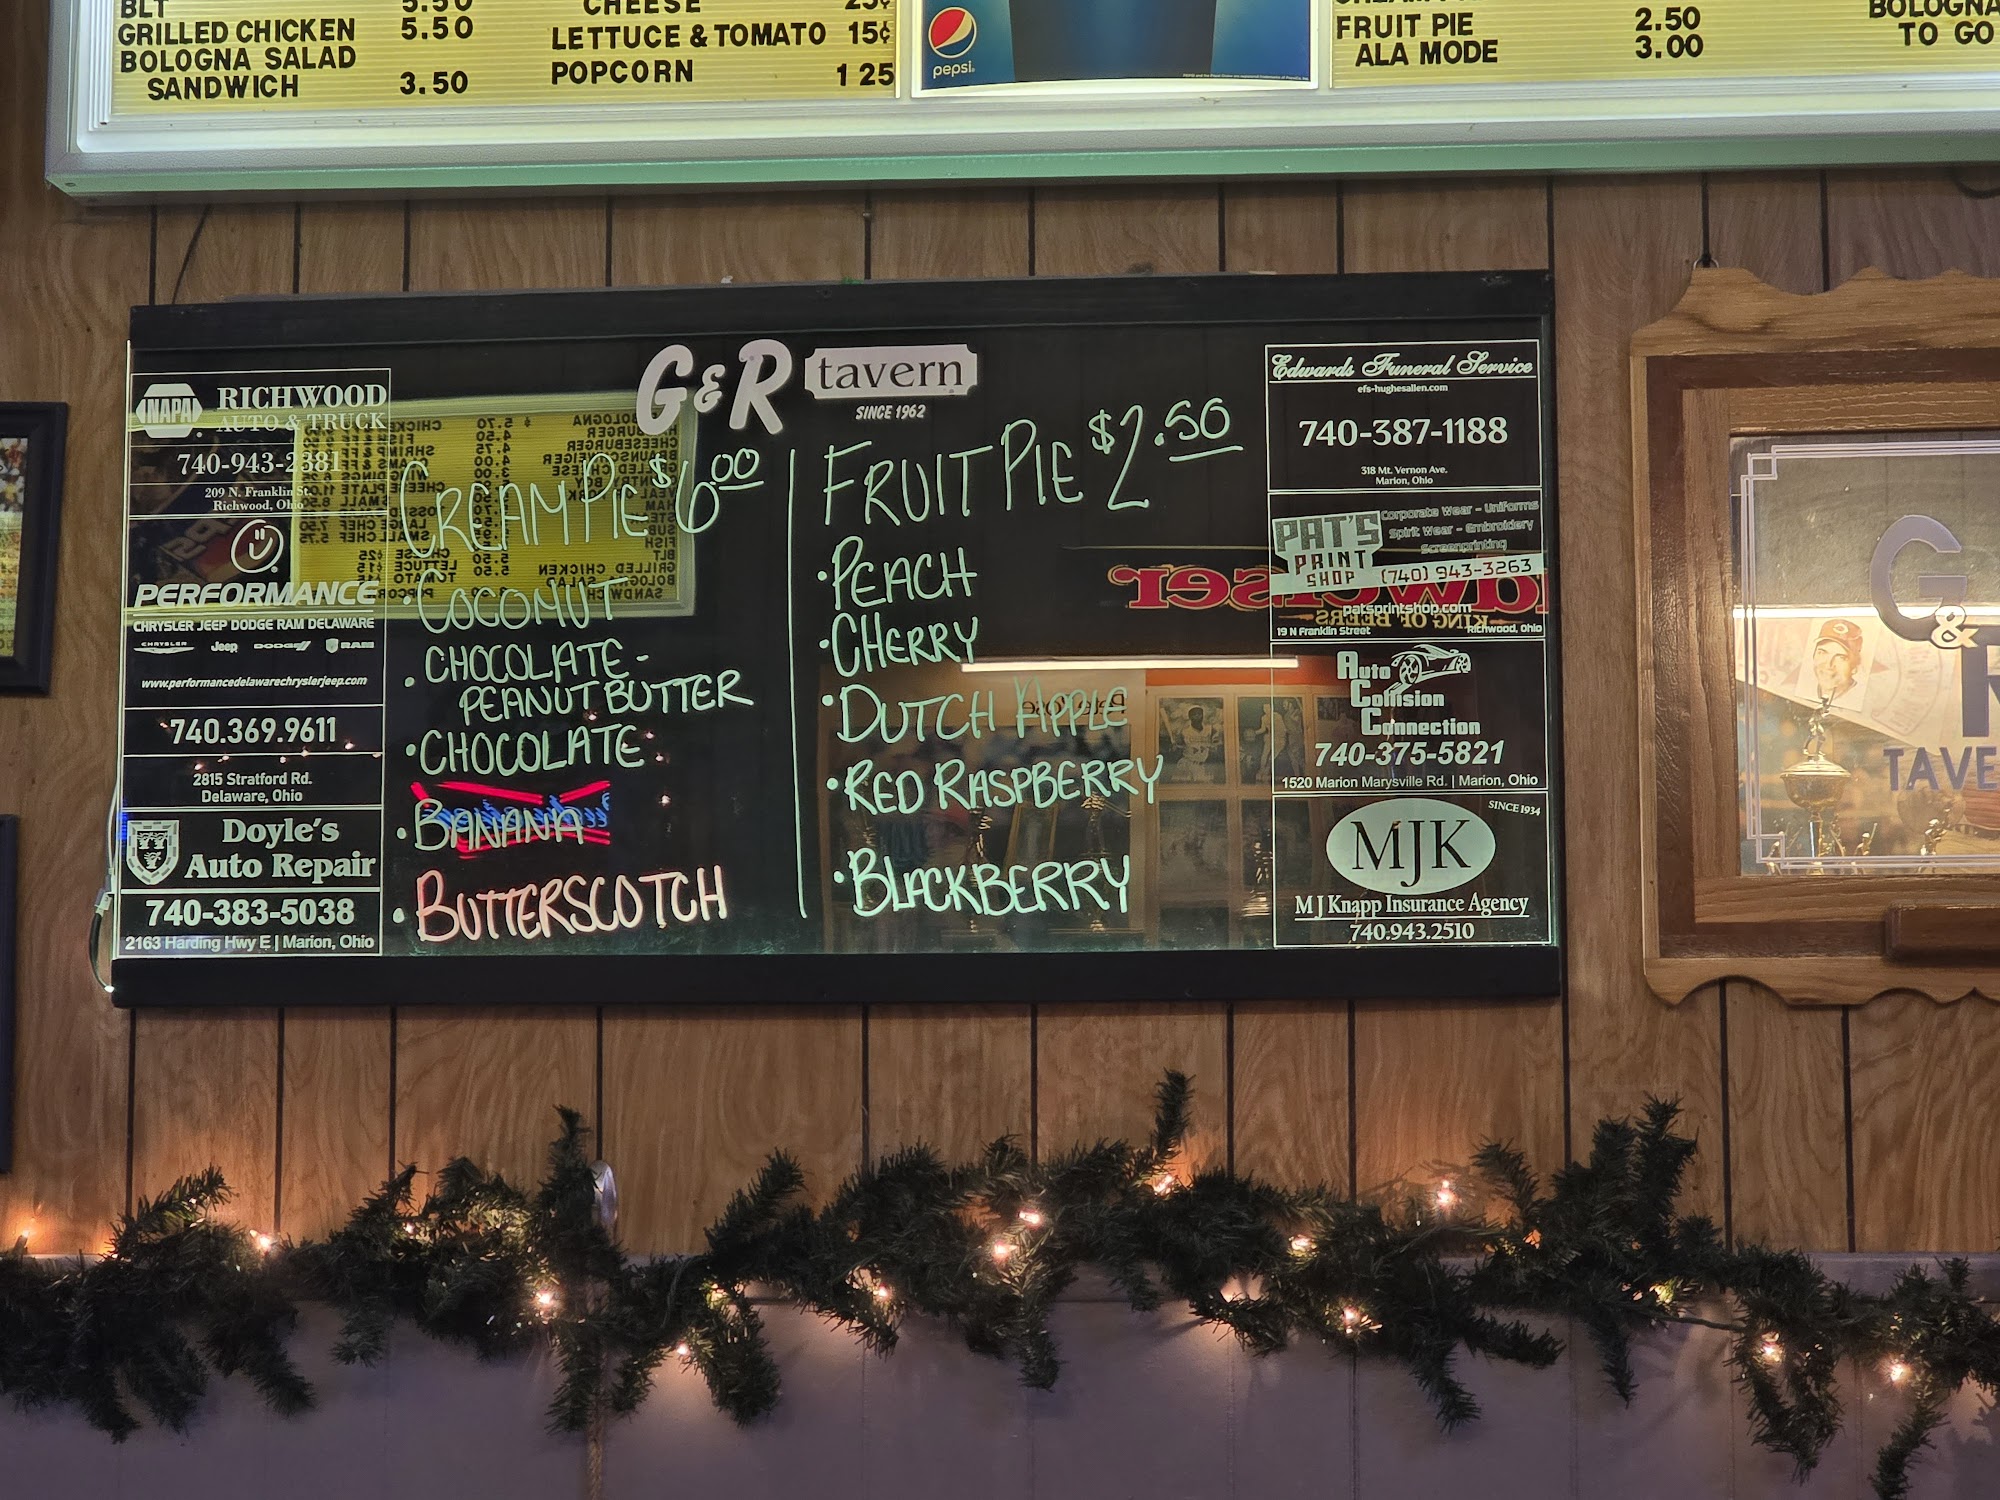 BLT 5.50
GRILLED CHICKEN 5.50
BOLOGNA SALAD
SANDWICH 3.50
CHEESE 25¢
LETTUCE & TOMATO 15¢
POPCORN 1 25
pepsi
FRUIT PIE 2.50
ALA MODE 3.00
BOLOGNA
TO GO
G & R tavern
SINCE 1962
NAPA RICHWOOD
AUTO & TRUCK
740-943-2381
209 N. Franklin St.
Richwood, Ohio
PERFORMANCE
CHRYSLER JEEP DODGE RAM DELAWARE
CHRYSLER Jeep DODGE RAM
www.performancedelawarechryslerjeep.com
740.369.9611
2815 Stratford Rd.
Delaware, Ohio
Doyle's
Auto Repair
740-383-5038
2163 Harding Hwy E | Marion, Ohio
CREAM PIE $6.00
• COCONUT
• CHOCOLATE -
PEANUT BUTTER
• CHOCOLATE
• BANANA
• BUTTERSCOTCH
FRUIT PIE $2.50
• PEACH
• CHERRY
• DUTCH APPLE
• RED RASPBERRY
• BLACKBERRY
Edwards Funeral Service
efs-hughesallen.com
740-387-1188
318 Mt. Vernon Ave.
Marion, Ohio
PAT'S
PRINT
SHOP
Corporate Wear - Uniforms
Spirit Wear - Embroidery
Screenprinting
(740) 943-3263
patsprintshop.com
19 N Franklin Street Richwood, Ohio
Auto
Collision
Connection
740-375-5821
1520 Marion Marysville Rd. | Marion, Ohio
SINCE 1934
MJK
M J Knapp Insurance Agency
740.943.2510
G
&
R
TAVE